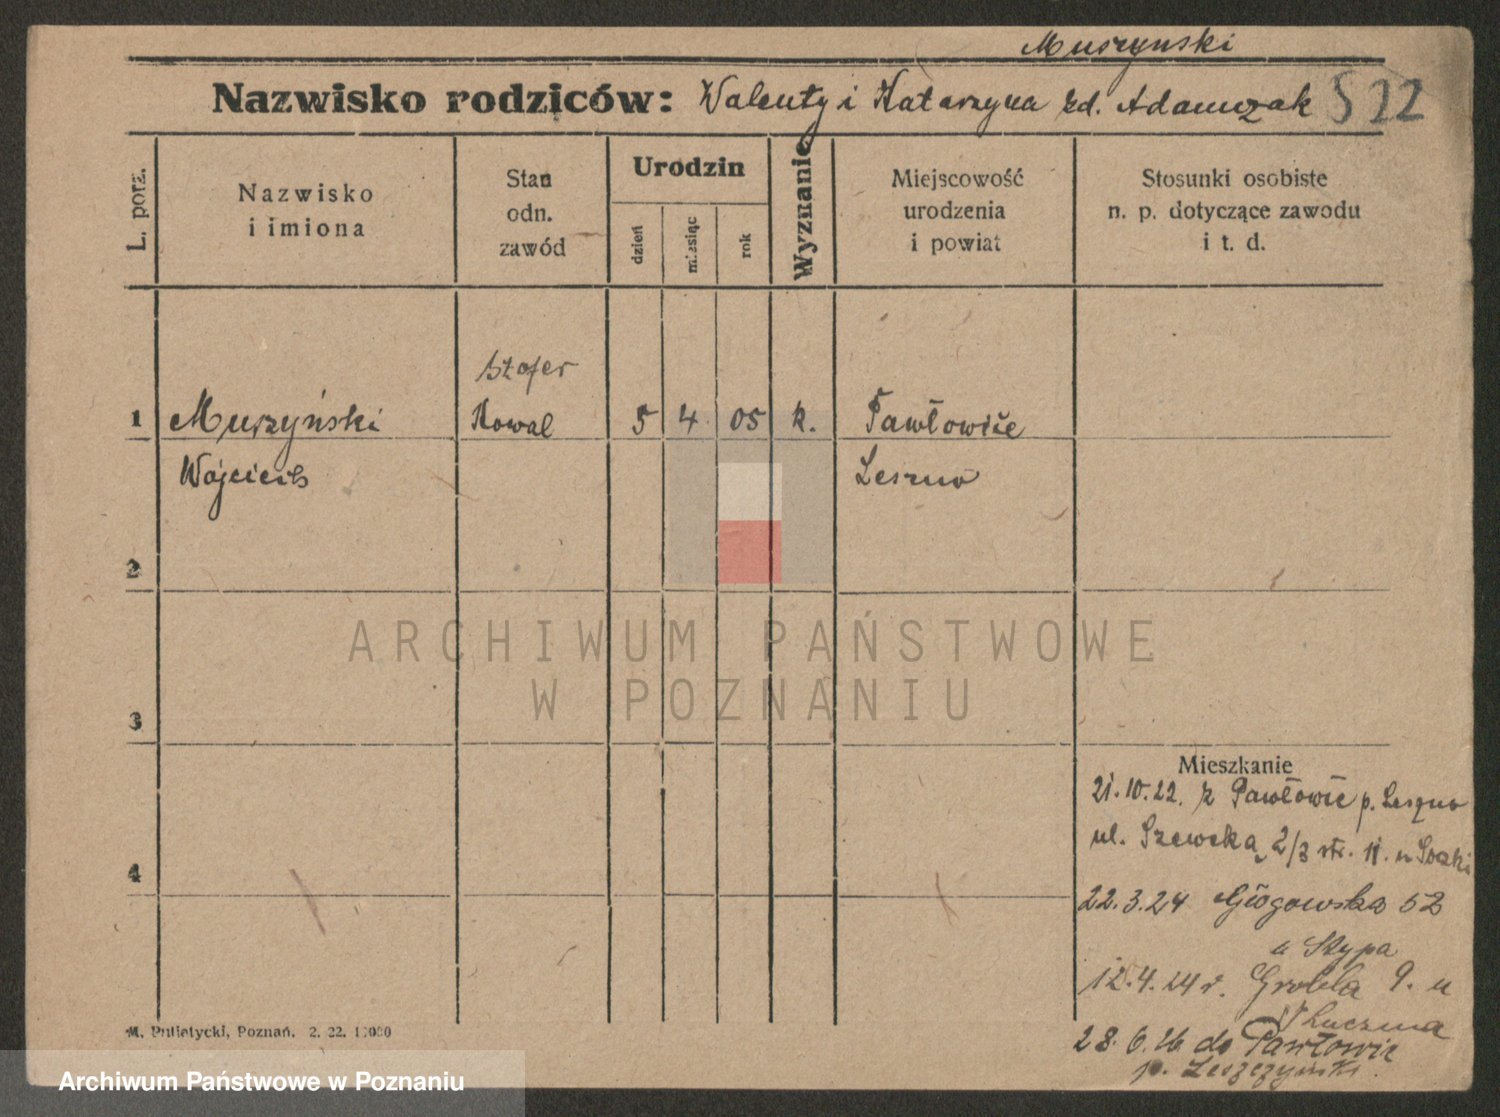 Muszynski
Nazwisko rodziców: Walenty i Katarzyna zd. Adamczak 522
L. porz.
Nazwisko
i imiona
Stan
odn.
zawód
Urodzin
dzień
miesiąc
rok
Wyznanie
Miejscowość
urodzenia
i powiat
Stosunki osobiste
n. p. dotyczące zawodu
i t. d.
Szofer
1 Muszyński Kowal 5 4 05 k. Pawłowice
Wojciech Leszno
2
3
4
Mieszkanie
21.10.22. z Pawłowic p. Leszno
ul. Szewska 2/3 str. 11. u
22.3.24 Głogowska 52
u Stypa
12.4.24 r. Grobla 9. u
28.6.26 do Pawłowic
p. Leszczyński.
M. Putiatycki, Poznań. 2. 22. 1000
ARCHIWUM PAŃSTWOWE
W POZNANIU
Archiwum Państwowe w Poznaniu